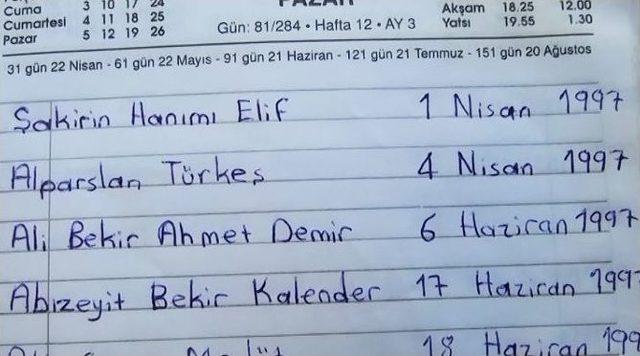 Cuma 3 10 17 24
Cumartesi 4 11 18 25
Pazar 5 12 19 26
PAZAR
Gün: 81/284 • Hafta 12 • AY 3
Akşam 18.25 12.00
Yatsı 19.55 1.30
31 gün 22 Nisan - 61 gün 22 Mayıs - 91 gün 21 Haziran - 121 gün 21 Temmuz - 151 gün 20 Ağustos
Şakirin Hanımı Elif 1 Nisan 1997
Alparslan Türkeş 4 Nisan 1997
Ali Bekir Ahmet Demir 6 Haziran 1997
Abızeyit Bekir Kalender 17 Haziran 1997
18 Haziran 199